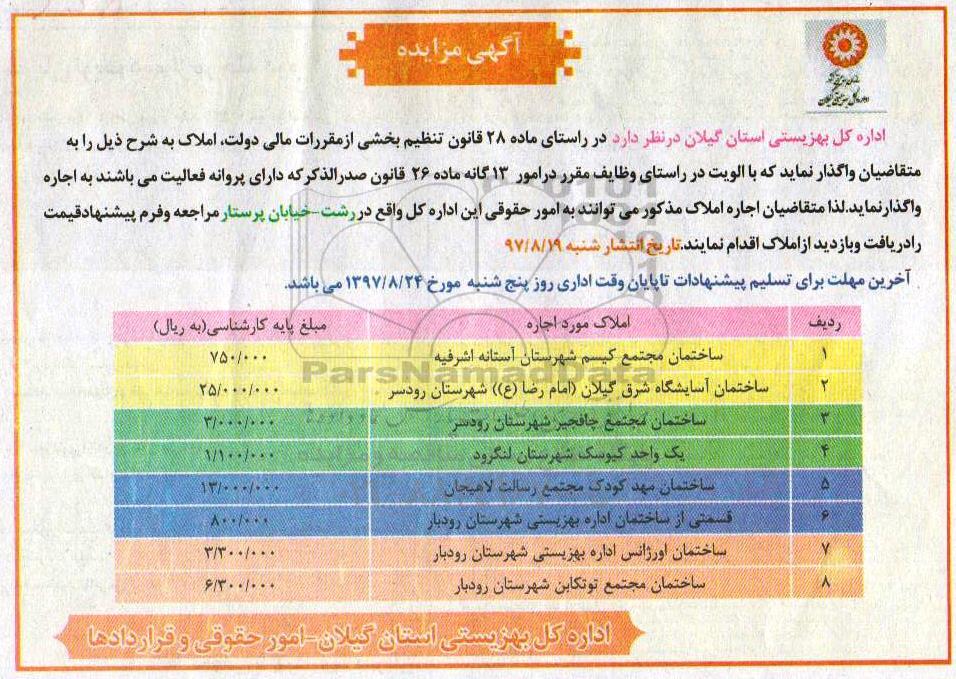 آگهی مزایده
سازمان بهزیستی کشور
اداره کل بهزیستی گیلان
اداره کل بهزیستی استان گیلان درنظر دارد در راستای ماده ۲۸ قانون تنظیم بخشی ازمقررات مالی دولت، املاک به شرح ذیل را به
متقاضیان واگذار نماید که با الویت در راستای وظایف مقرر درامور ۱۳ گانه ماده ۲۶ قانون صدرالذکرکه دارای پروانه فعالیت می باشند به اجاره
واگذارنماید.لذا متقاضیان اجاره املاک مذکور می توانند به امور حقوقی این اداره کل واقع در رشت-خیابان پرستار مراجعه وفرم پیشنهادقیمت
رادریافت وبازدید ازاملاک اقدام نمایند.تاریخ انتشار شنبه ۹۷/۸/۱۹
آخرین مهلت برای تسلیم پیشنهادات تاپایان وقت اداری روز پنج شنبه مورخ ۱۳۹۷/۸/۲۴ می باشد.
ردیف املاک مورد اجاره مبلغ پایه کارشناسی(به ریال)
۱ ساختمان مجتمع کیسم شهرستان آستانه اشرفیه ۷۵۰/۰۰۰
۲ ساختمان آسایشگاه شرق گیلان (امام رضا (ع)) شهرستان رودسر ۲۵/۰۰۰/۰۰۰
ParsNamadData
۳ ساختمان مجتمع چافجیر شهرستان رودسر ۳/۰۰۰/۰۰۰
۴ یک واحد کیوسک شهرستان لنگرود ۱/۱۰۰/۰۰۰
۵ ساختمان مهد کودک مجتمع رسالت لاهیجان ۱۳/۰۰۰/۰۰۰
۶ قسمتی از ساختمان اداره بهزیستی شهرستان رودبار ۸۰۰/۰۰۰
۷ ساختمان اورژانس اداره بهزیستی شهرستان رودبار ۳/۳۰۰/۰۰۰
۸ ساختمان مجتمع توتکابن شهرستان رودبار ۶/۳۰۰/۰۰۰
اداره کل بهزیستی استان گیلان-امور حقوقی و قراردادها